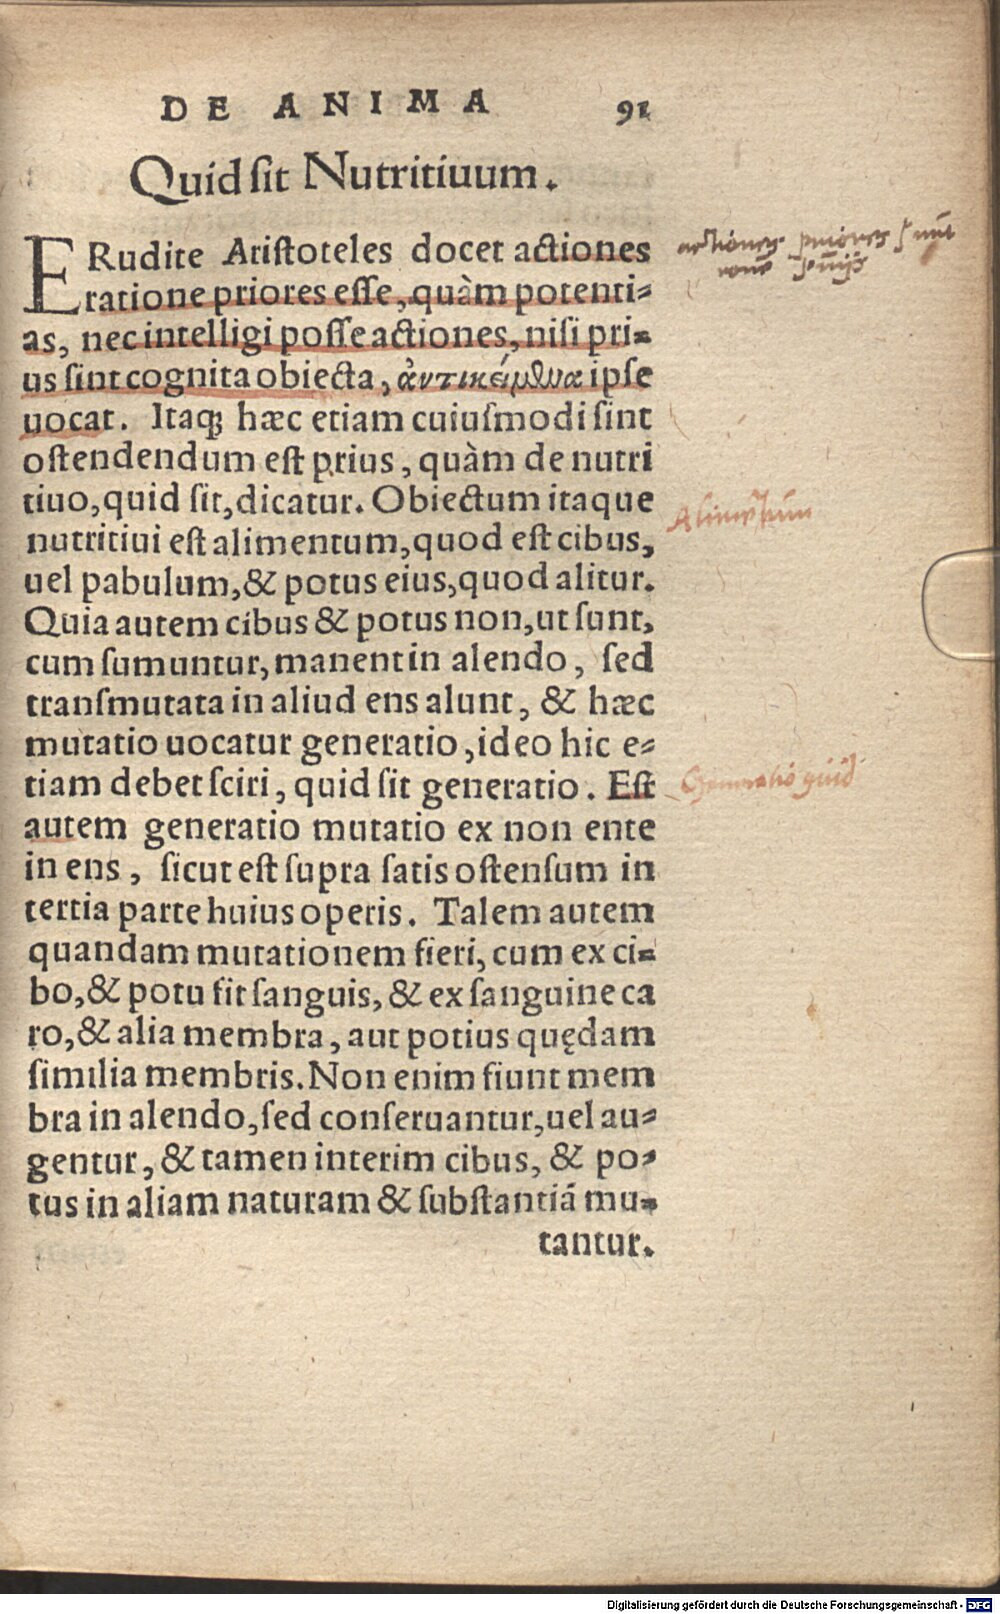 DE ANIMA 91
Quid ſit Nutritiuum.
ERudite Ariſtoteles docet actiones
ratione priores eſſe, quàm potenti-
as, nec intelligi poſſe actiones, niſi pri-
us ſint cognita obiecta, ἀντικείμϸνα ipſe
uocat. Itaq; hæc etiam cuiuſmodi ſint
oſtendendum eſt prius, quàm de nutri
tiuo, quid ſit, dicatur. Obiectum itaque
nutritiui eſt alimentum, quod eſt cibus,
uel pabulum, & potus eius, quod alitur.
Quia autem cibus & potus non, ut ſunt,
cum ſumuntur, manent in alendo, ſed
tranſmutata in aliud ens alunt, & hæc
mutatio uocatur generatio, ideo hic e-
tiam debet ſciri, quid ſit generatio. Eſt
autem generatio mutatio ex non ente
in ens, ſicut eſt ſupra ſatis oſtenſum in
tertia parte huius operis. Talem autem
quandam mutationem fieri, cum ex ci-
bo, & potu fit ſanguis, & ex ſanguine ca
ro, & alia membra, aut potius quędam
ſimilia membris. Non enim fiunt mem
bra in alendo, ſed conſeruantur, uel au-
gentur, & tamen interim cibus, & po-
tus in aliam naturam & ſubſtantiā mu-
tantur.
actiones priores ſunt
Alimētum
Generatio quid
Digitalisierung gefördert durch die Deutsche Forschungsgemeinschaft - DFG